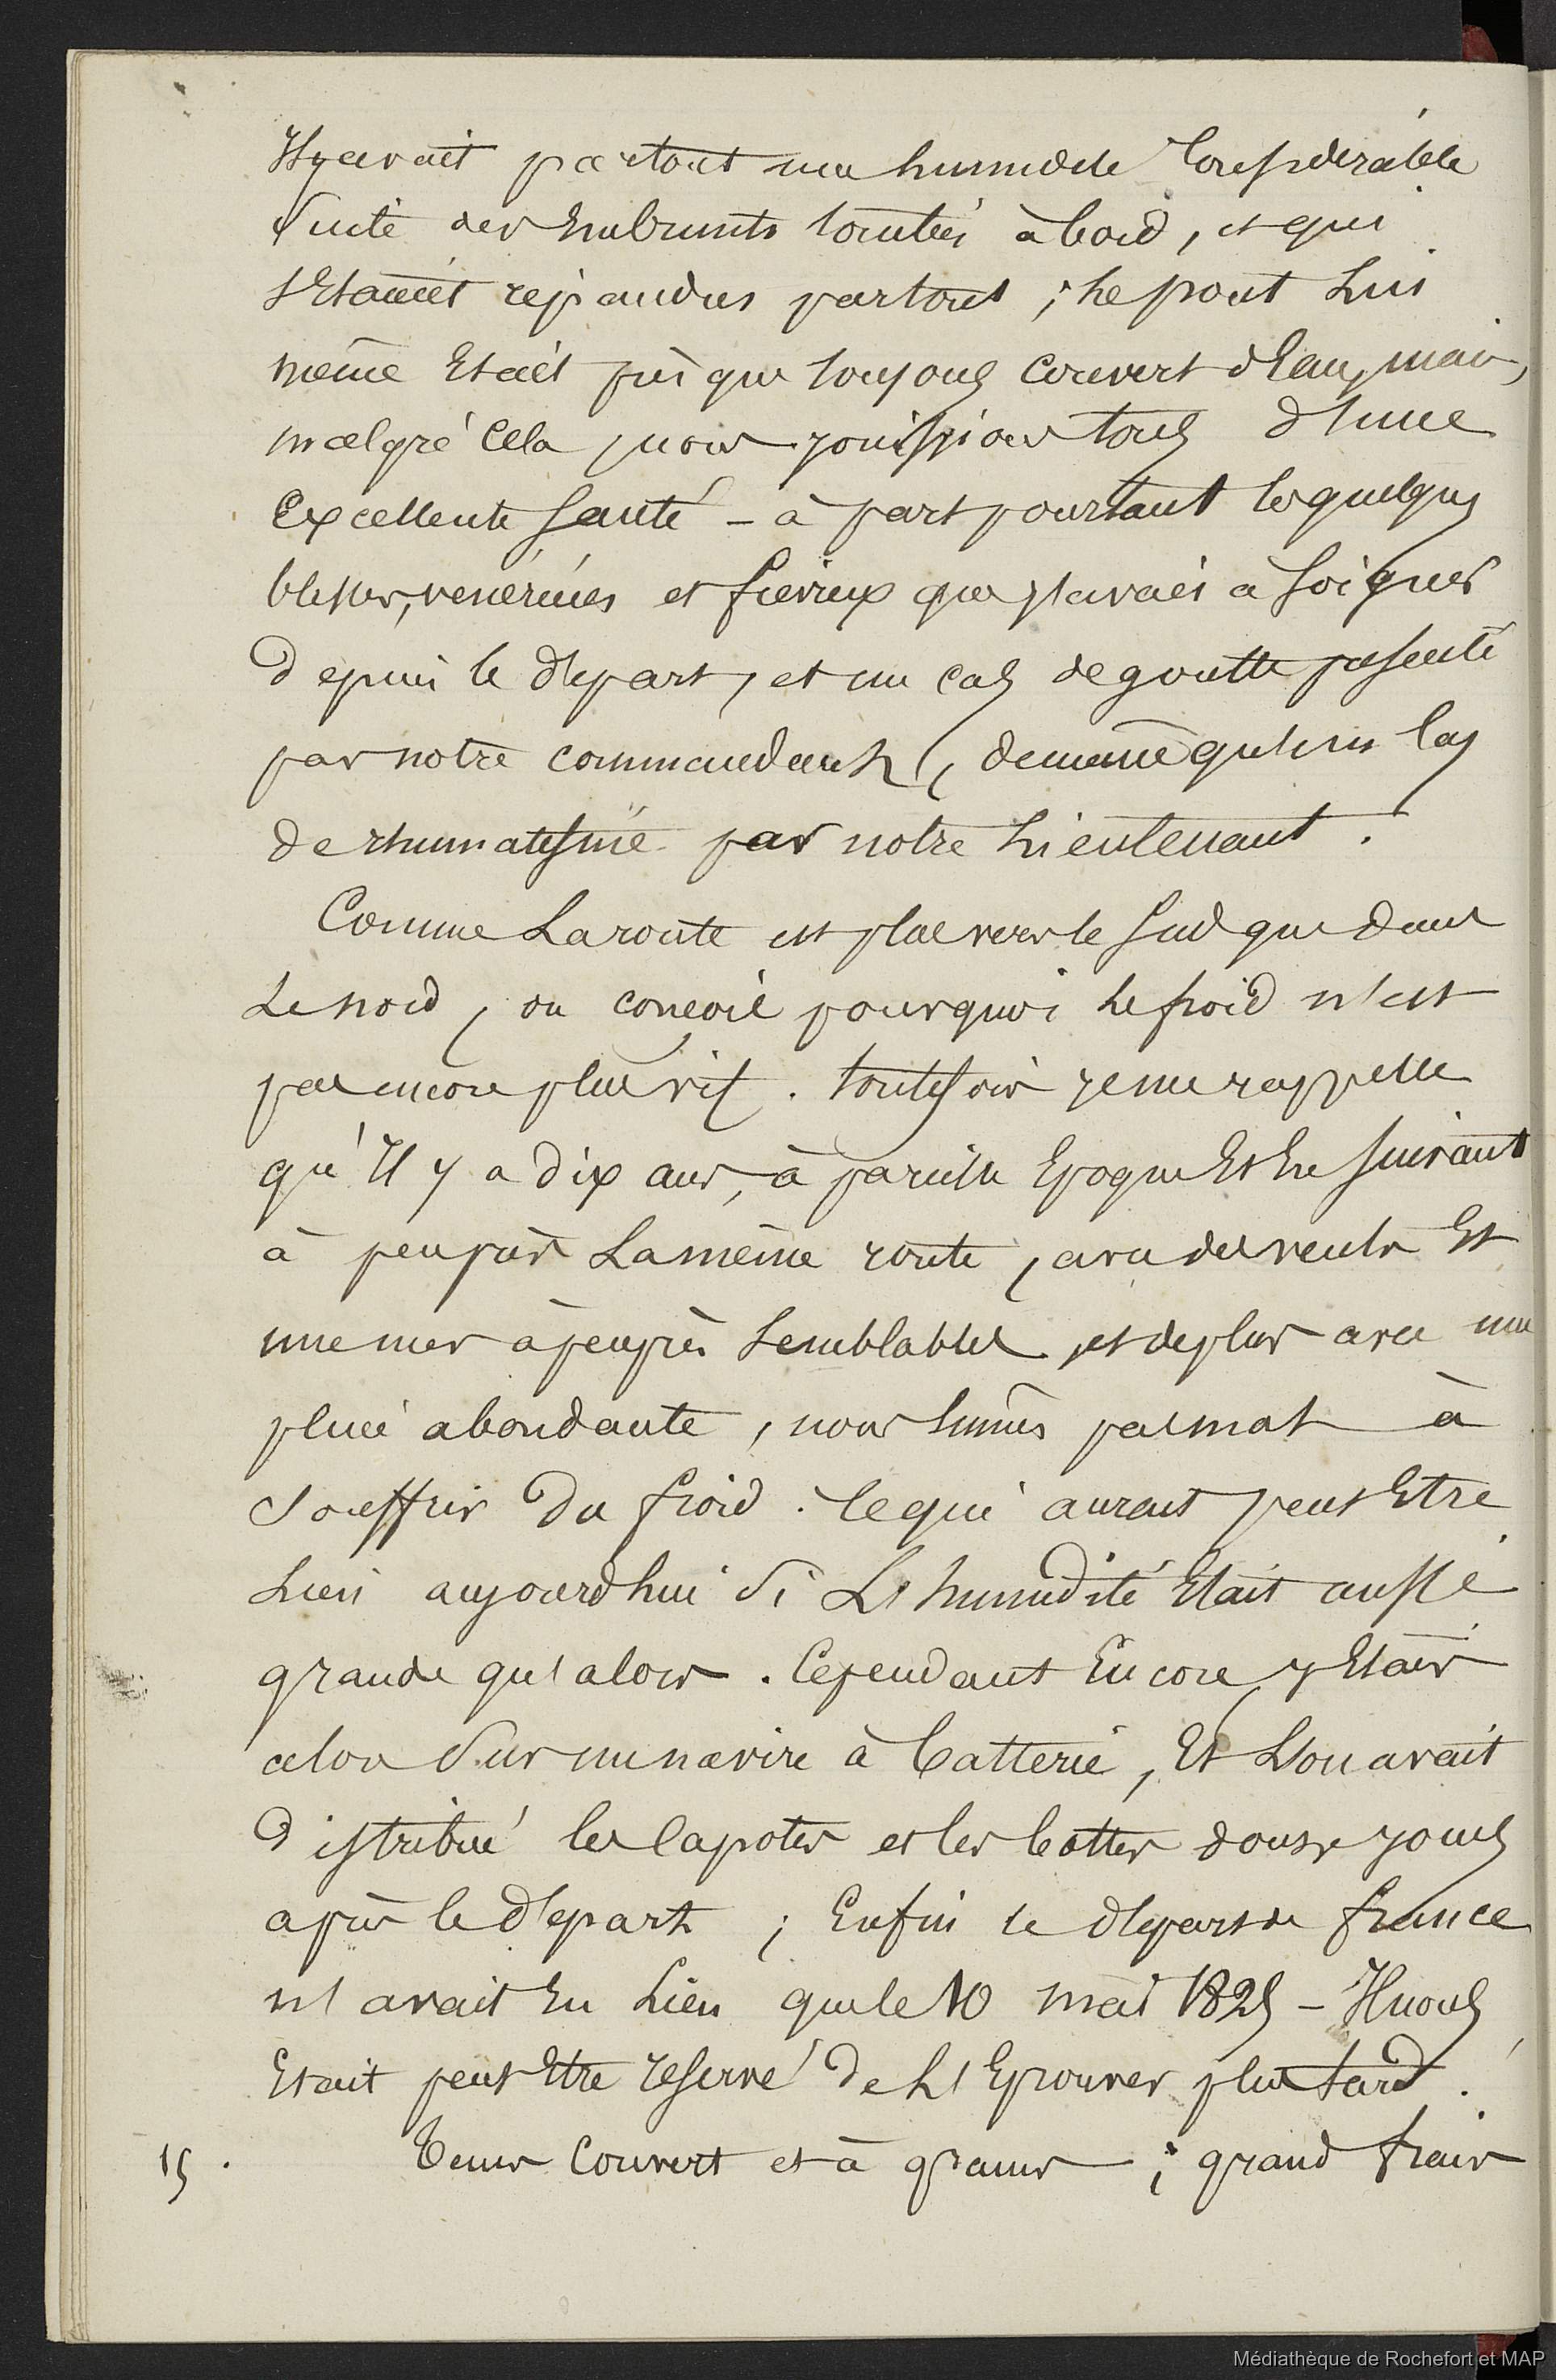 Il y avait partout une humidité considérable
suite des Embrunts tombés à bord, et qui
s'Etaient répandus partout ; Le pont Lui
même Etait presque toujours couvert d'Eau, mais,
malgré cela, nous jouissions tous d'une
Excellente santé - à part pourtant les quelques
blessés, vénériens et fiévreux que j'avais à soigner
Depuis le départ, et un cas de goutte présenté
par notre commandant, de même qu'un cas
de rhumatisme par notre Lieutenant.
Comme La route est plus vers le sud que dans
Le nord, on conçoit pourquoi Le froid n'est
pas encore plus vif. toutefois je me rappelle
qu'Il y a dix ans, à pareille Epoque Et En suivant
à peu près La même route, avec des vents Et
une mer à peu près semblables, et de plus avec une
pluie abondante, nous Eumes pas mal à
souffrir Du froid. ce qui aurait peut Etre
Lieu aujourdhui si L'humidité Etait aussi
grande qu'alors. Cependant Encore j'Etais
alors sur un navire à batterie, Et L'on avait
Distribué les capotes et les bottes douze jours
après le départ ; Enfin le départ de france
n'avait Eu Lieu que le 10 mai 1825 - Il nous
Etait peut Etre réservé De L'Eprouver plus tard.
15. Tems couvert et à grains ; grand frais
Médiathèque de Rochefort et MAP